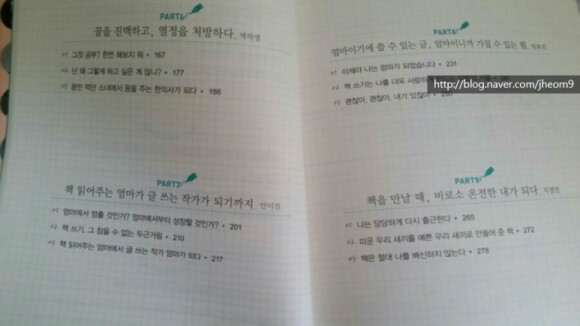 PART6
꿈을 진맥하고, 열정을 처방하다_
#1 그깟 공부? 한번 해보지 뭐 • 167
#2 넌 왜 그렇게 하고 싶은 게 많니? • 177
#3 꿈만 먹던 소녀에서 꿈을 주는 한의사가 되다 • 186
PART7
책 읽어주는 엄마가 글 쓰는 작가가 되기까지_
#1 엄마에서 멈출 것인가? 엄마에서부터 성장할 것인가? • 201
#2 책 쓰기, 그 참을 수 없는 두근거림 • 210
#3 책 읽어주는 엄마에서 글 쓰는 작가 엄마가 되다 • 217
PART8
엄마이기에 쓸 수 있는 글, 엄마이니까 가질 수 있는 힘
#1 이제야 나는 엄마가 되었습니다 • 231
#2 책 쓰기는 나를 더욱 사랑하
#3 괜찮아, 괜찮아, 내가 있잖아 •
http://blog.naver.com/jheom9
PART9
책을 만날 때, 비로소 온전한 내가 되다
#1 나는 당당하게 다시 출근한다 • 265
#2 미운 우리 새끼를 예쁜 우리 새끼로 만들어 준 책 • 272
#3 책은 절대 나를 배신하지 않는다 • 278